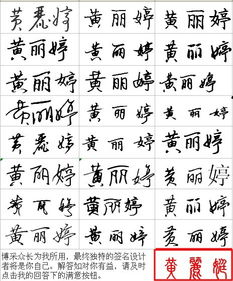 黄麗婷 黄丽婷 黄丽婷
黄丽婷 黄丽婷 黄丽婷
黄丽婷 黄丽婷 黄丽婷
黄丽婷 黄丽婷 黄丽婷
黄麗婷 黄丽婷 黄丽婷
黄丽婷 黄丽婷 黄丽婷
黄丽婷 黄丽婷 黄丽婷
黄丽婷 黄丽婷 黄丽婷
博采众长为我所用，最终独特的签名设计
者将是你自己。解答如对你有益，请及时
点击我的回答下的满意按钮。
黄麗婷